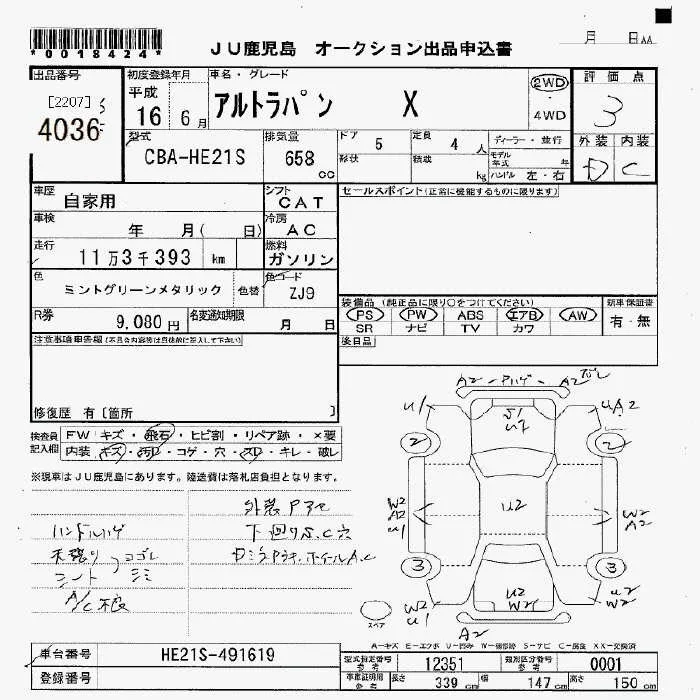 *0018424*
JU鹿児島 オークション出品申込書
月 日
出品番号 初度登録年月 車名・グレード 評価点
[2207] 平成 16年 6月 アルトラパン X 2WD ・ 4WD 3
4036
型式 排気量 ドア 定員 ディーラー・並行 外装 内装
CBA-HE21S 658 cc 5 4人 モデル年式 年 D C
形状 積載 kg ハンドル 左・右
車歴 自家用 シフト CAT セールスポイント(正常に機能するものに限ります)
車検 年 月( 日) 冷房 AC
走行 11万3千393 km 燃料 ガソリン
色 ミントグリーンメタリック 色替 色コード ZJ9
装備品(純正品に限り○をつけてください) 新車保証書
PS PW ABS エアB AW 有・無
SR ナビ TV カワ
R券 9,080円 名変通知期限 月 日
後日品
注意事項申告欄(不具合内容等は具体的に記入して下さい)
修復歴 有 [箇所 ]
検査員記入欄 FW キズ・飛石・ヒビ割・リペア跡・×要
内装 キズ・汚れ・コゲ・穴・スレ・キレ・破レ
※現車はJU鹿児島にあります。陸送費は落札店負担となります。
外装Pアセ
ハンドルハゲ 下回りS.C穴
天張り コゴレ
シート シミ
A/C不良
A2
A2
U1
UA2
S1
U2
2
2
W2
A2
U1
U2
W2
A2
3
3
U2
W2
W2
U1
U2
W2
A2
スペア
A-キズ E-エクボ U-凹み W-補修跡 S-サビ C-腐食 XX-交換済
車台番号 HE21S-491619
登録番号
型式指定番号 参考 12351 類別区分番号 参考 0001
車庫証明用 参考 長さ 339 cm 幅 147 cm 高さ 150 cm